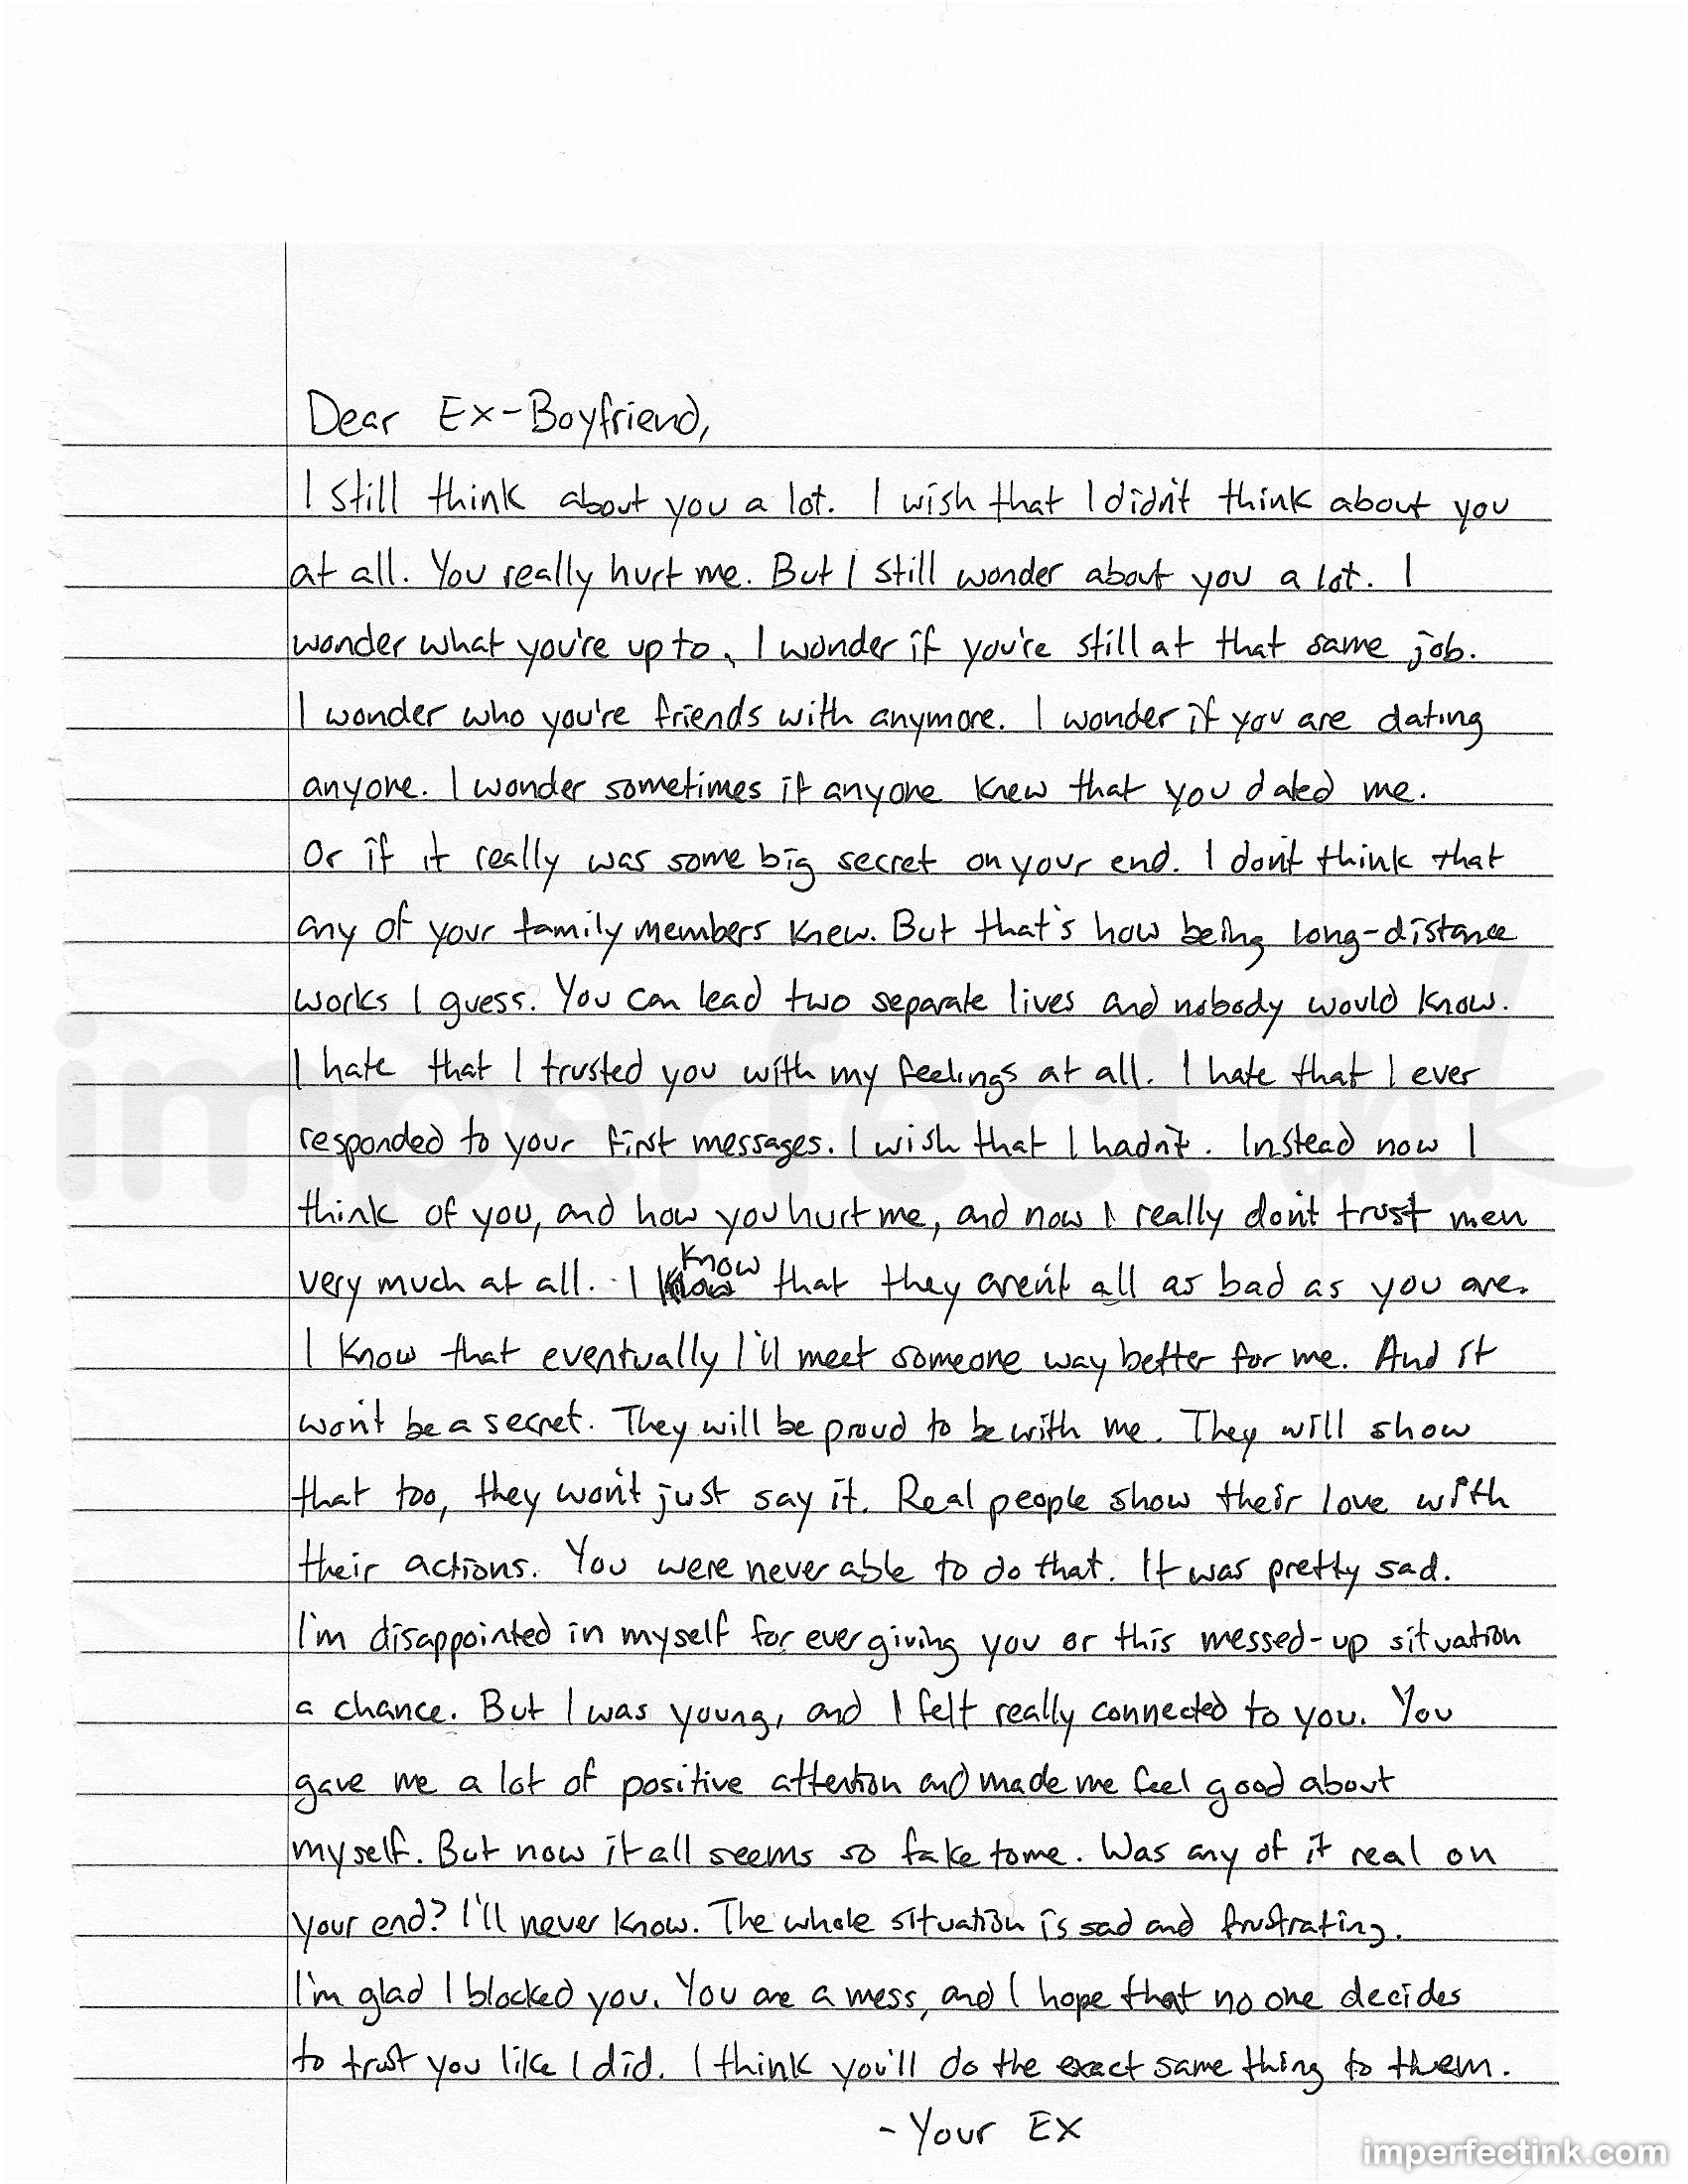 Dear Ex-Boyfriend,
I still think about you a lot. I wish that I didn't think about you
at all. You really hurt me. But I still wonder about you a lot. I
wonder what you're up to. I wonder if you're still at that same job.
I wonder who you're friends with anymore. I wonder if you are dating
anyone. I wonder sometimes if anyone knew that you dated me.
Or if it really was some big secret on your end. I don't think that
any of your family members knew. But that's how being long-distance
works I guess. You can lead two separate lives and nobody would know.
I hate that I trusted you with my feelings at all. I hate that I ever
responded to your first messages. I wish that I hadn't. Instead now I
think of you, and how you hurt me, and now I really don't trust men
very much at all. I know that they aren't all as bad as you are.
I know that eventually I'll meet someone way better for me. And it
won't be a secret. They will be proud to be with me. They will show
that too, they won't just say it. Real people show their love with
their actions. You were never able to do that. It was pretty sad.
I'm disappointed in myself for ever giving you or this messed-up situation
a chance. But I was young, and I felt really connected to you. You
gave me a lot of positive attention and made me feel good about
myself. But now it all seems so fake to me. Was any of it real on
your end? I'll never know. The whole situation is sad and frustrating.
I'm glad I blocked you. You are a mess, and I hope that no one decides
to trust you like I did. I think you'll do the exact same thing to them.
- Your Ex
imperfect ink
imperfectink.com